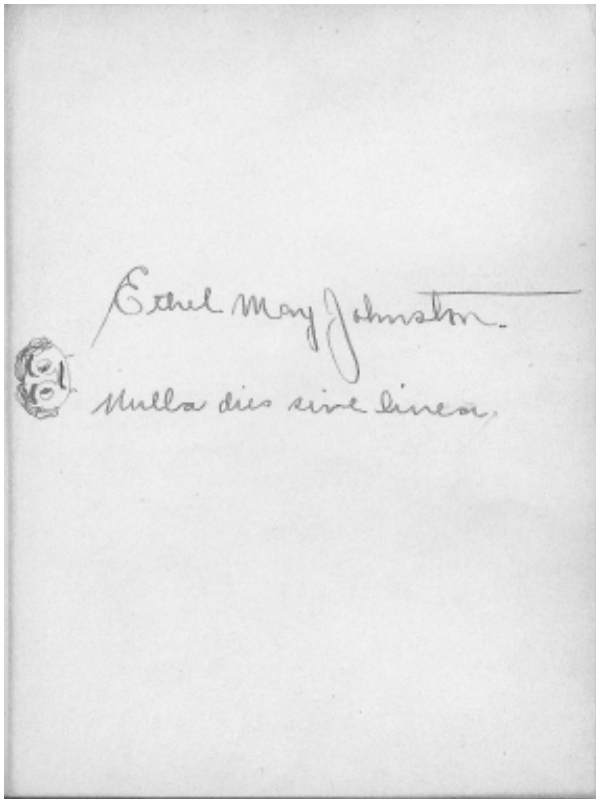 Ethel May Johnston.
Nulla dies sine linea.